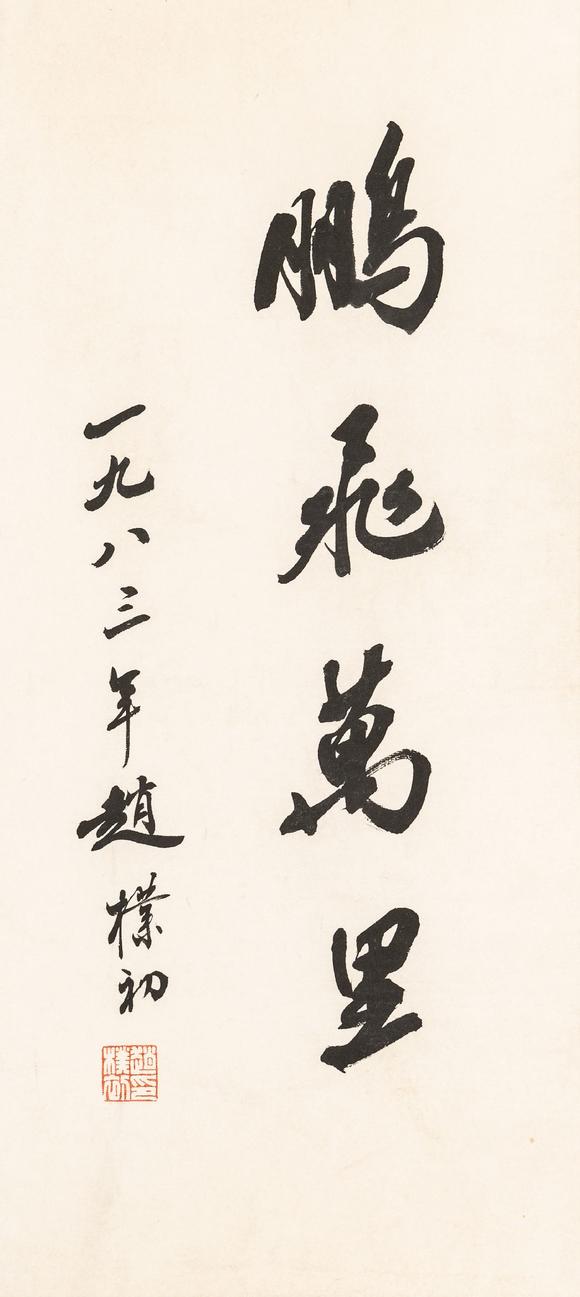 鵬飛萬里
一九八三年趙樸初
趙樸初印